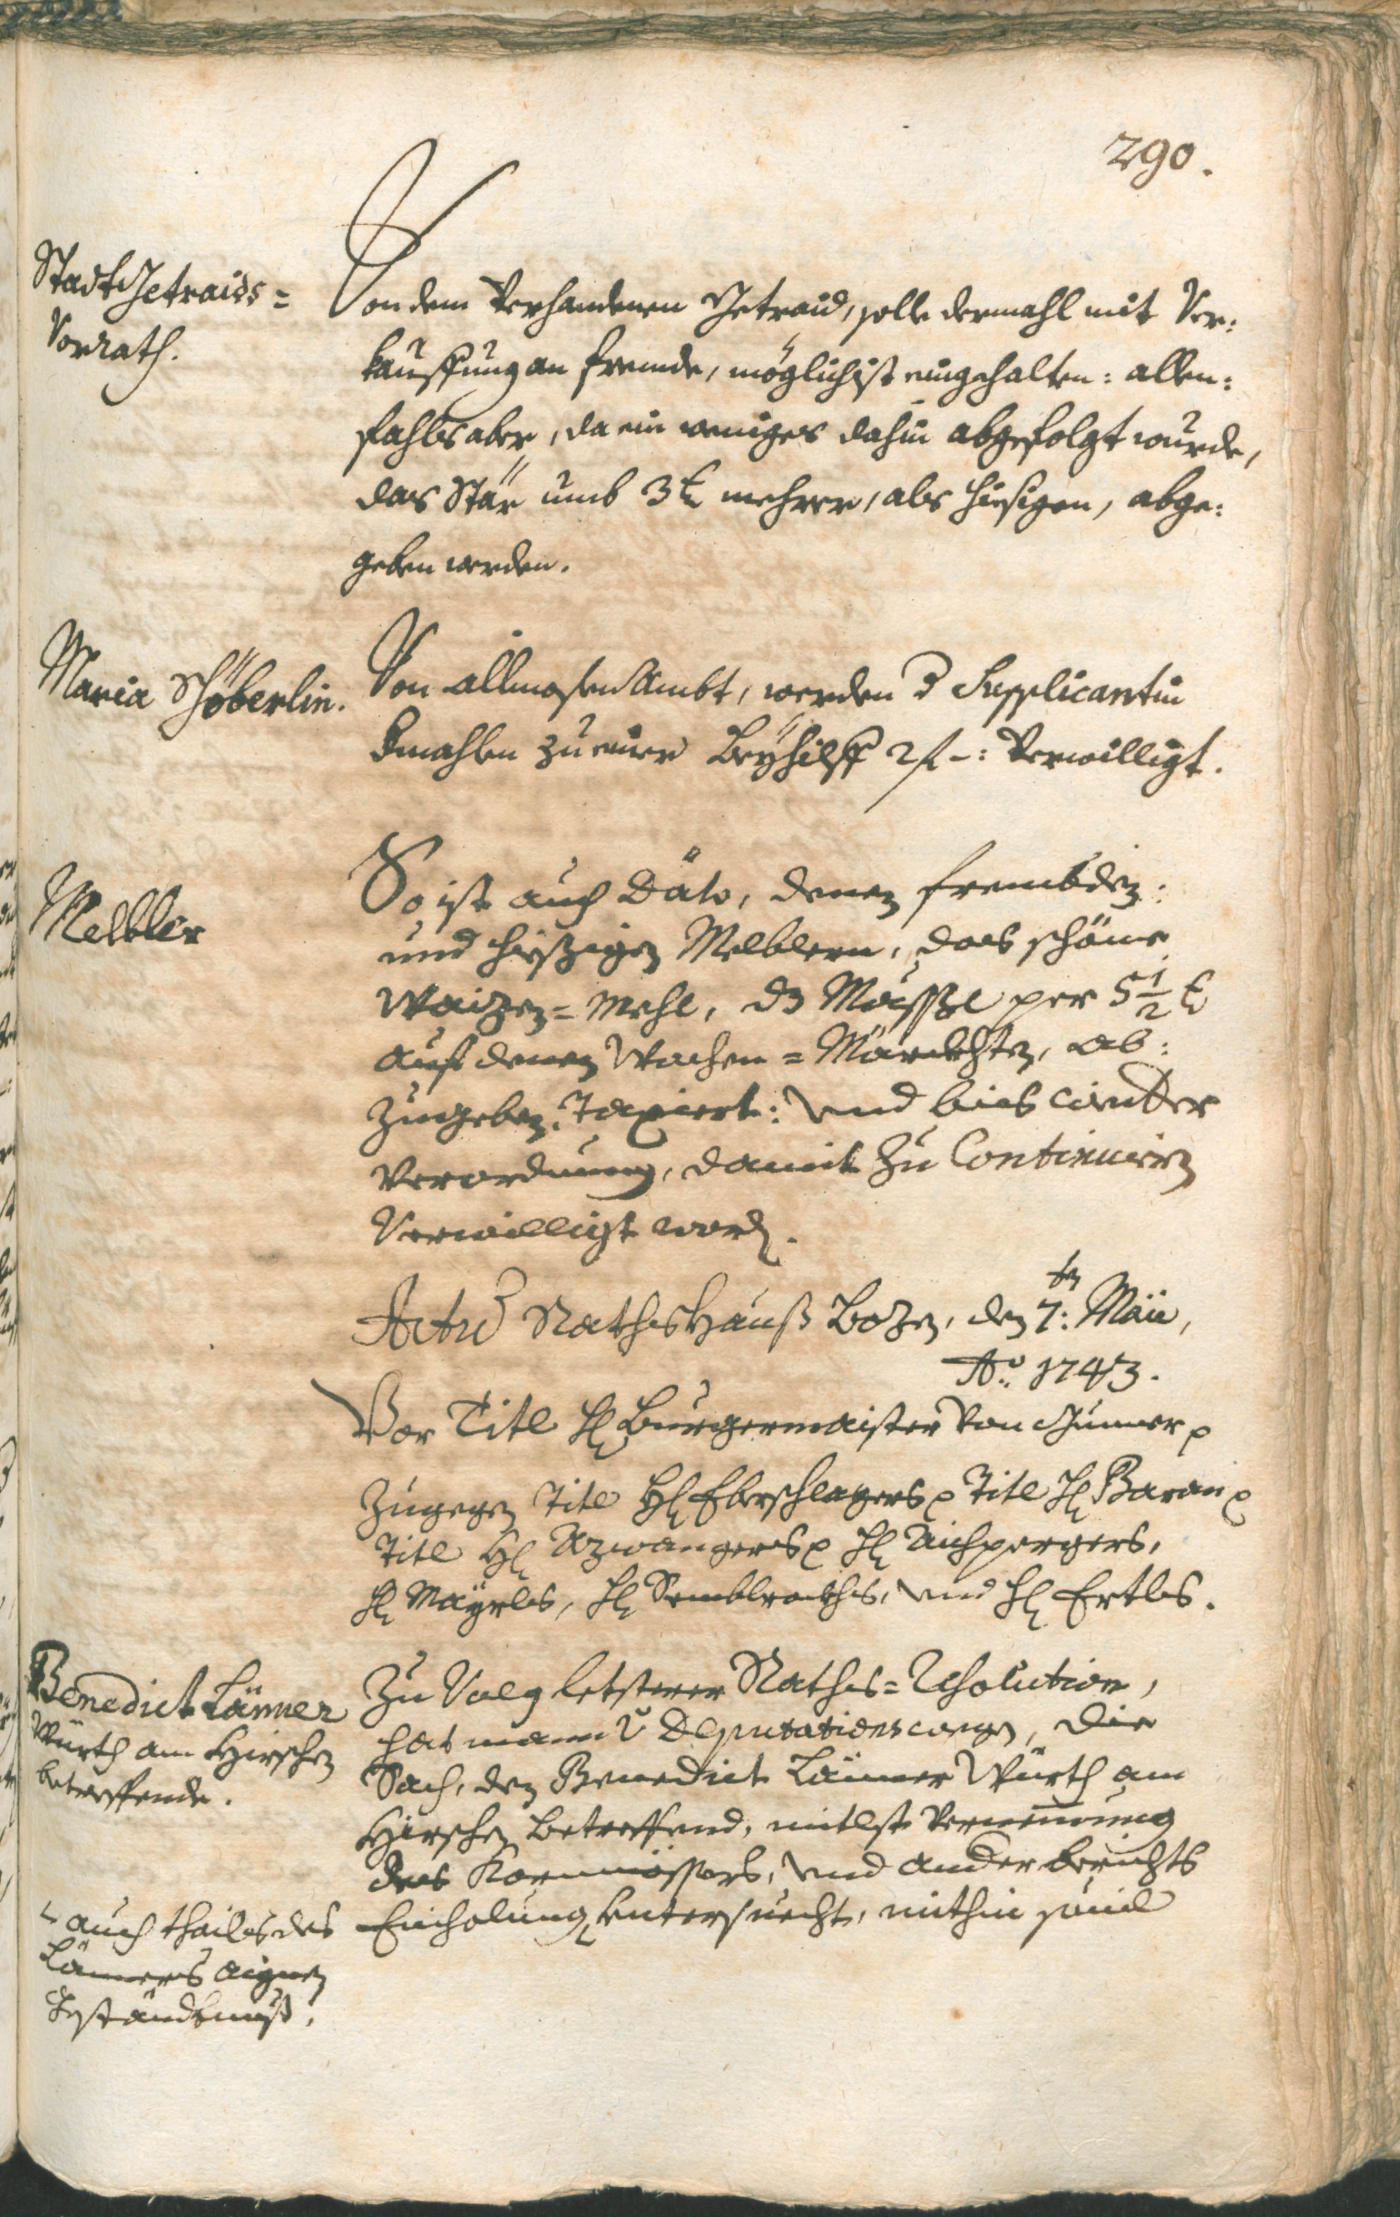 290.
Stadt Getraids=
Vorrath.
Von dem Verhandenen Getraid, solle dermahl mit Ver:
kauffung an fremde, möglichist eingehalten: allen:
fahls aber, da ein weniges dahin abgefolgt wurde,
das Stär umb 3 x mehrer, als hiesigen, abge:
geben werden.
Maria Schöberlin.
Von allmosen Ambt, werden d Supplicantin
dmahlen zu einer Beyhilff 2 f -: Verwilligt.
Melbler
So ist auch Dato, denen frembden:
und hiesigen Melblern, das schöne
Waizen=Mehl, ds Mässl per 5 1/2 x
auf denen Wochen=Märckhten, ab:
zugeben, Taxiert: Und bies auf
Verordnung, damit zu Continuiren
Verwilligt word.
Actu Rathshauß Bozen, den 7:ten Maii,
Ao: 1743.
Vor Titl H Burgermaister Von Gumer p
Zugegen Titl H Eberschlagers p Titl H Baran p
Titl H Azwangers p H Aichpergers,
H Mayrls, H Semblrockhs, Und H Ertls.
Benedict Länner
Würth am Hirschen
betreffende.
Zu Volg letsterer Raths=Resolution,
hat mann V Deputations wegen, die
Sach, den Benedict Länner Würth am
Hirschen betreffend, mitlst Vernemung
des Kornmössers, Und ander berichts
Einholung, untersuecht, mithin sovil
auch thails des
Länners aignen
Geständtnuß,